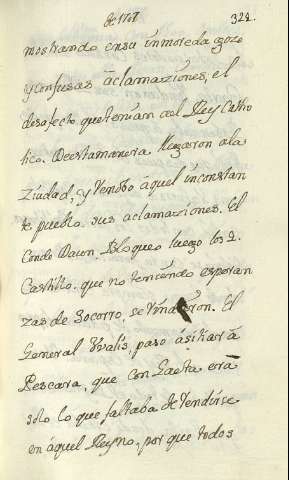 de 1707
322.
mostrando en su inmoreda gozo
y confusas áclamaziones, el
desafecto que tenían ael Rey Catho
lico. De esta manera llegaron ala
Ziudad, y áquel inconstan
te pueblo sus aclamaziones. El
Conde Daun Bloqueo luego los 2.
Castillo. que no teniendo esperan
zas de Socorro, se
El
General Vvalis, paso ásitiar á
Pescara, que con Gaeta era
solo lo que faltaba de Rendirse
en áquel Reyno, por que todos